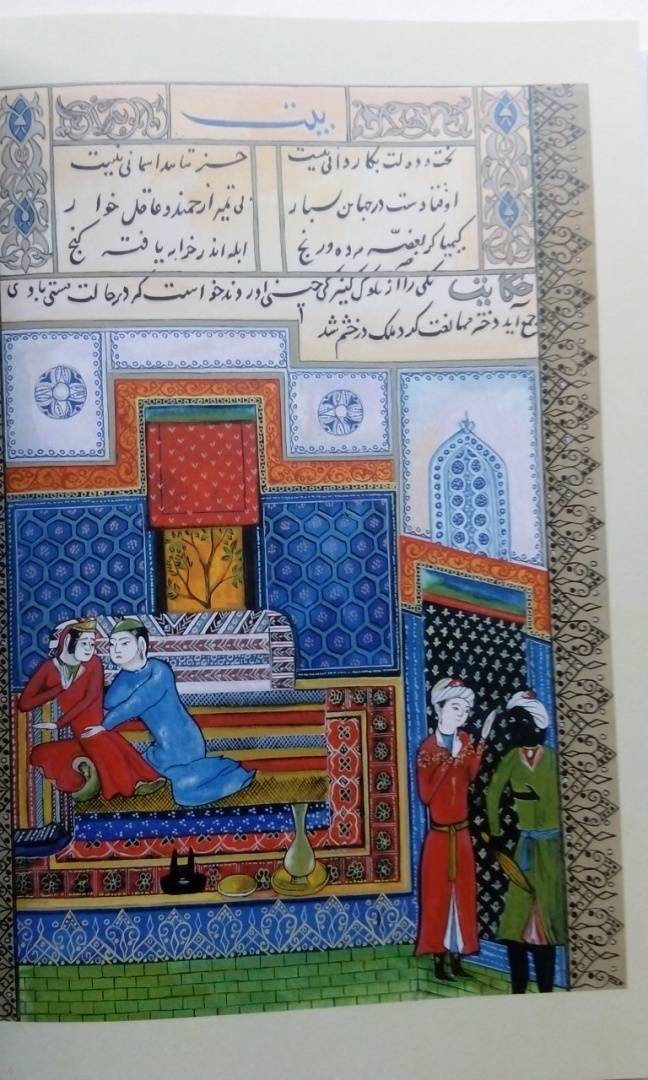 بیت
بخت و دولت بکاردانی نیست جز بتایید اسمانی نیست
اوفتادست در جهان بسیار بی تمیز ارجمند و عاقل خوار
کیمیاگر بغصّه مرده و رنج ابله اندر خرابه یافته گنج
حکایت یکی را از ملوک کنیزکی چینی اوردند خواست که در حالت مستی با وی
جمع آید دختر ممانعت کرد ملک در خشم شد